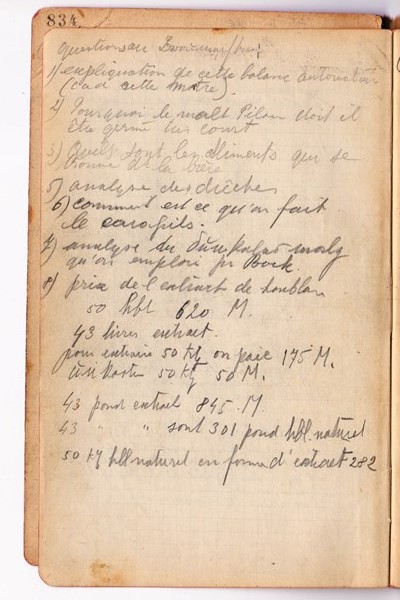 834
questions au
1) expliquation de cette balance automatique
(cad cette
2) Pourquoi le malt Pilsen doit il
être germé très court
3) Quels sont les aliments qui se
trouve de la bière
5) analyse des drèches
6) comment est ce qu'on fait
le
7) analyse du Dunkel malz
qu'on emploi pr Bock.
8) prix de l'extract de houblon
50 hbl 620 M.
43 livres extract.
pour extraire 50 Kg on paie 175 M.
50 Kg 50 M.
43 pond extract 845 M.
43 " " sont 301 pond hbl. naturel
50 Kg hbl naturel en forme d'extract 282